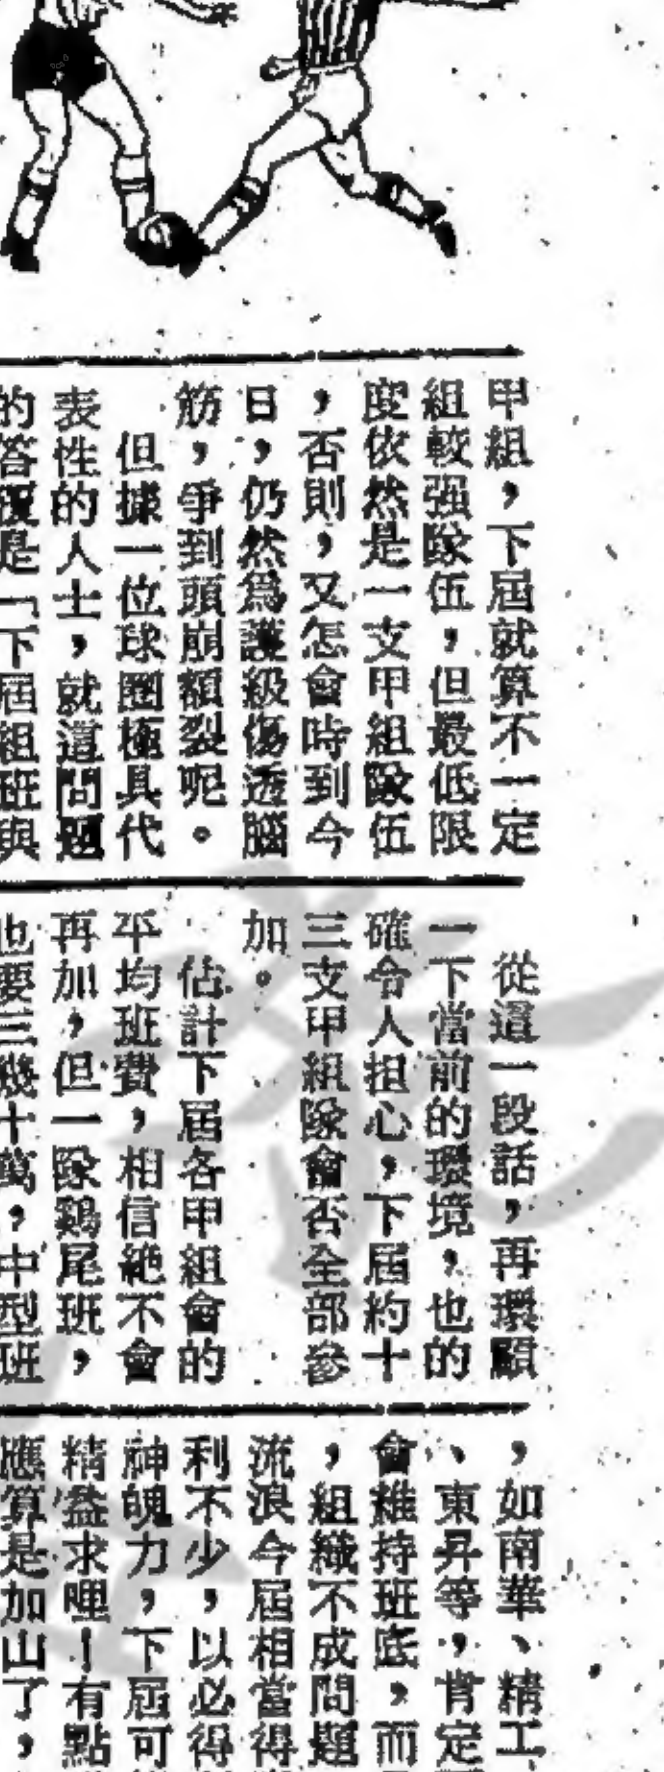 甲組，下屆就算不一定
組較强隊伍，但最低限
度依然是一支甲組隊伍
，否則，又怎會時到今
日，仍然爲護級傷透腦
筋，爭到頭崩額裂呢。
但據一位球圈極具代
表性的人士，就這問題
的答覆是「下屆組班與
從這一段話，再環顧
一下當前的環境，也的
確令人担心，下屆約十
三支甲組隊會否全部參
加。
估計下屆各甲組會的
平均班費，相信絕不會
再加，但一隊鷄尾班，
也要三幾十萬，中型班
，如南華、精工
、東昇等，肯定
會維持班底，而
，組織不成問題
流浪今屆相當得
利不少，以必得
神魄力，下屆可
精益求哩！有點
應算是加山了，